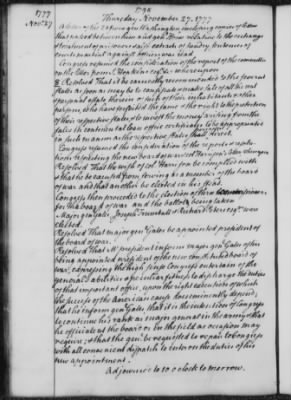 1777
Nov. 27
1798
Thursday November 27, 1777.
A letter of the 23 from gen. Washington enclosing copies of letters
that passed between him and genl Howe relative to the exchange
& treatment of prisoners and extracts of sundry sentences of
courts martial against officers was read
Congress resumed the consideration of the report of the committee
on the letter from J. Hopkinson esqr. &c. whereupon
Resolved That it be earnestly recommended to the several
States as soon as may be to confiscate & make sale of all the real
& personal estate therein of such of their inhabitants & other
persons who have forfeited the same & the right to the protection
of their respective states, & to invest the money arising from the
sales in continental loan office certificates to be appropriated
in such manner as the respective states shall direct.
Congress resumed the consideration of the report
Resolved That the request of col. Harrison be complied with
& that he be excused from serving as a member of the board
of war and that another be elected in his stead.
Congress then proceeded to the election of three commissioners
for the board of war and the ballots being taken
Major general Gates Joseph Trumbull & Richard Peters esqrs. was
elected.
Resolved That major gen Gates be appointed president of
the board of war.
Resolved That Mr president inform major gen Gates of his
being appointed president of the new constituted board of
war, expressing the high sense Congress entertain of the
general's abilities & peculiar fitness to discharge the duties
of that important office, upon the right execution of which
the success of the American cause does eminently depend;
that he inform gen Gates that it is the intention of Congress
to continue his rank as major general in the army & that
he officiate at the board or in the field as occasion may
require; & that the genl. be requested to repair to Congress
with all convenient dispatch to enter on the duties of this
new appointment.
Adjourned to 10 o'clock to morrow.